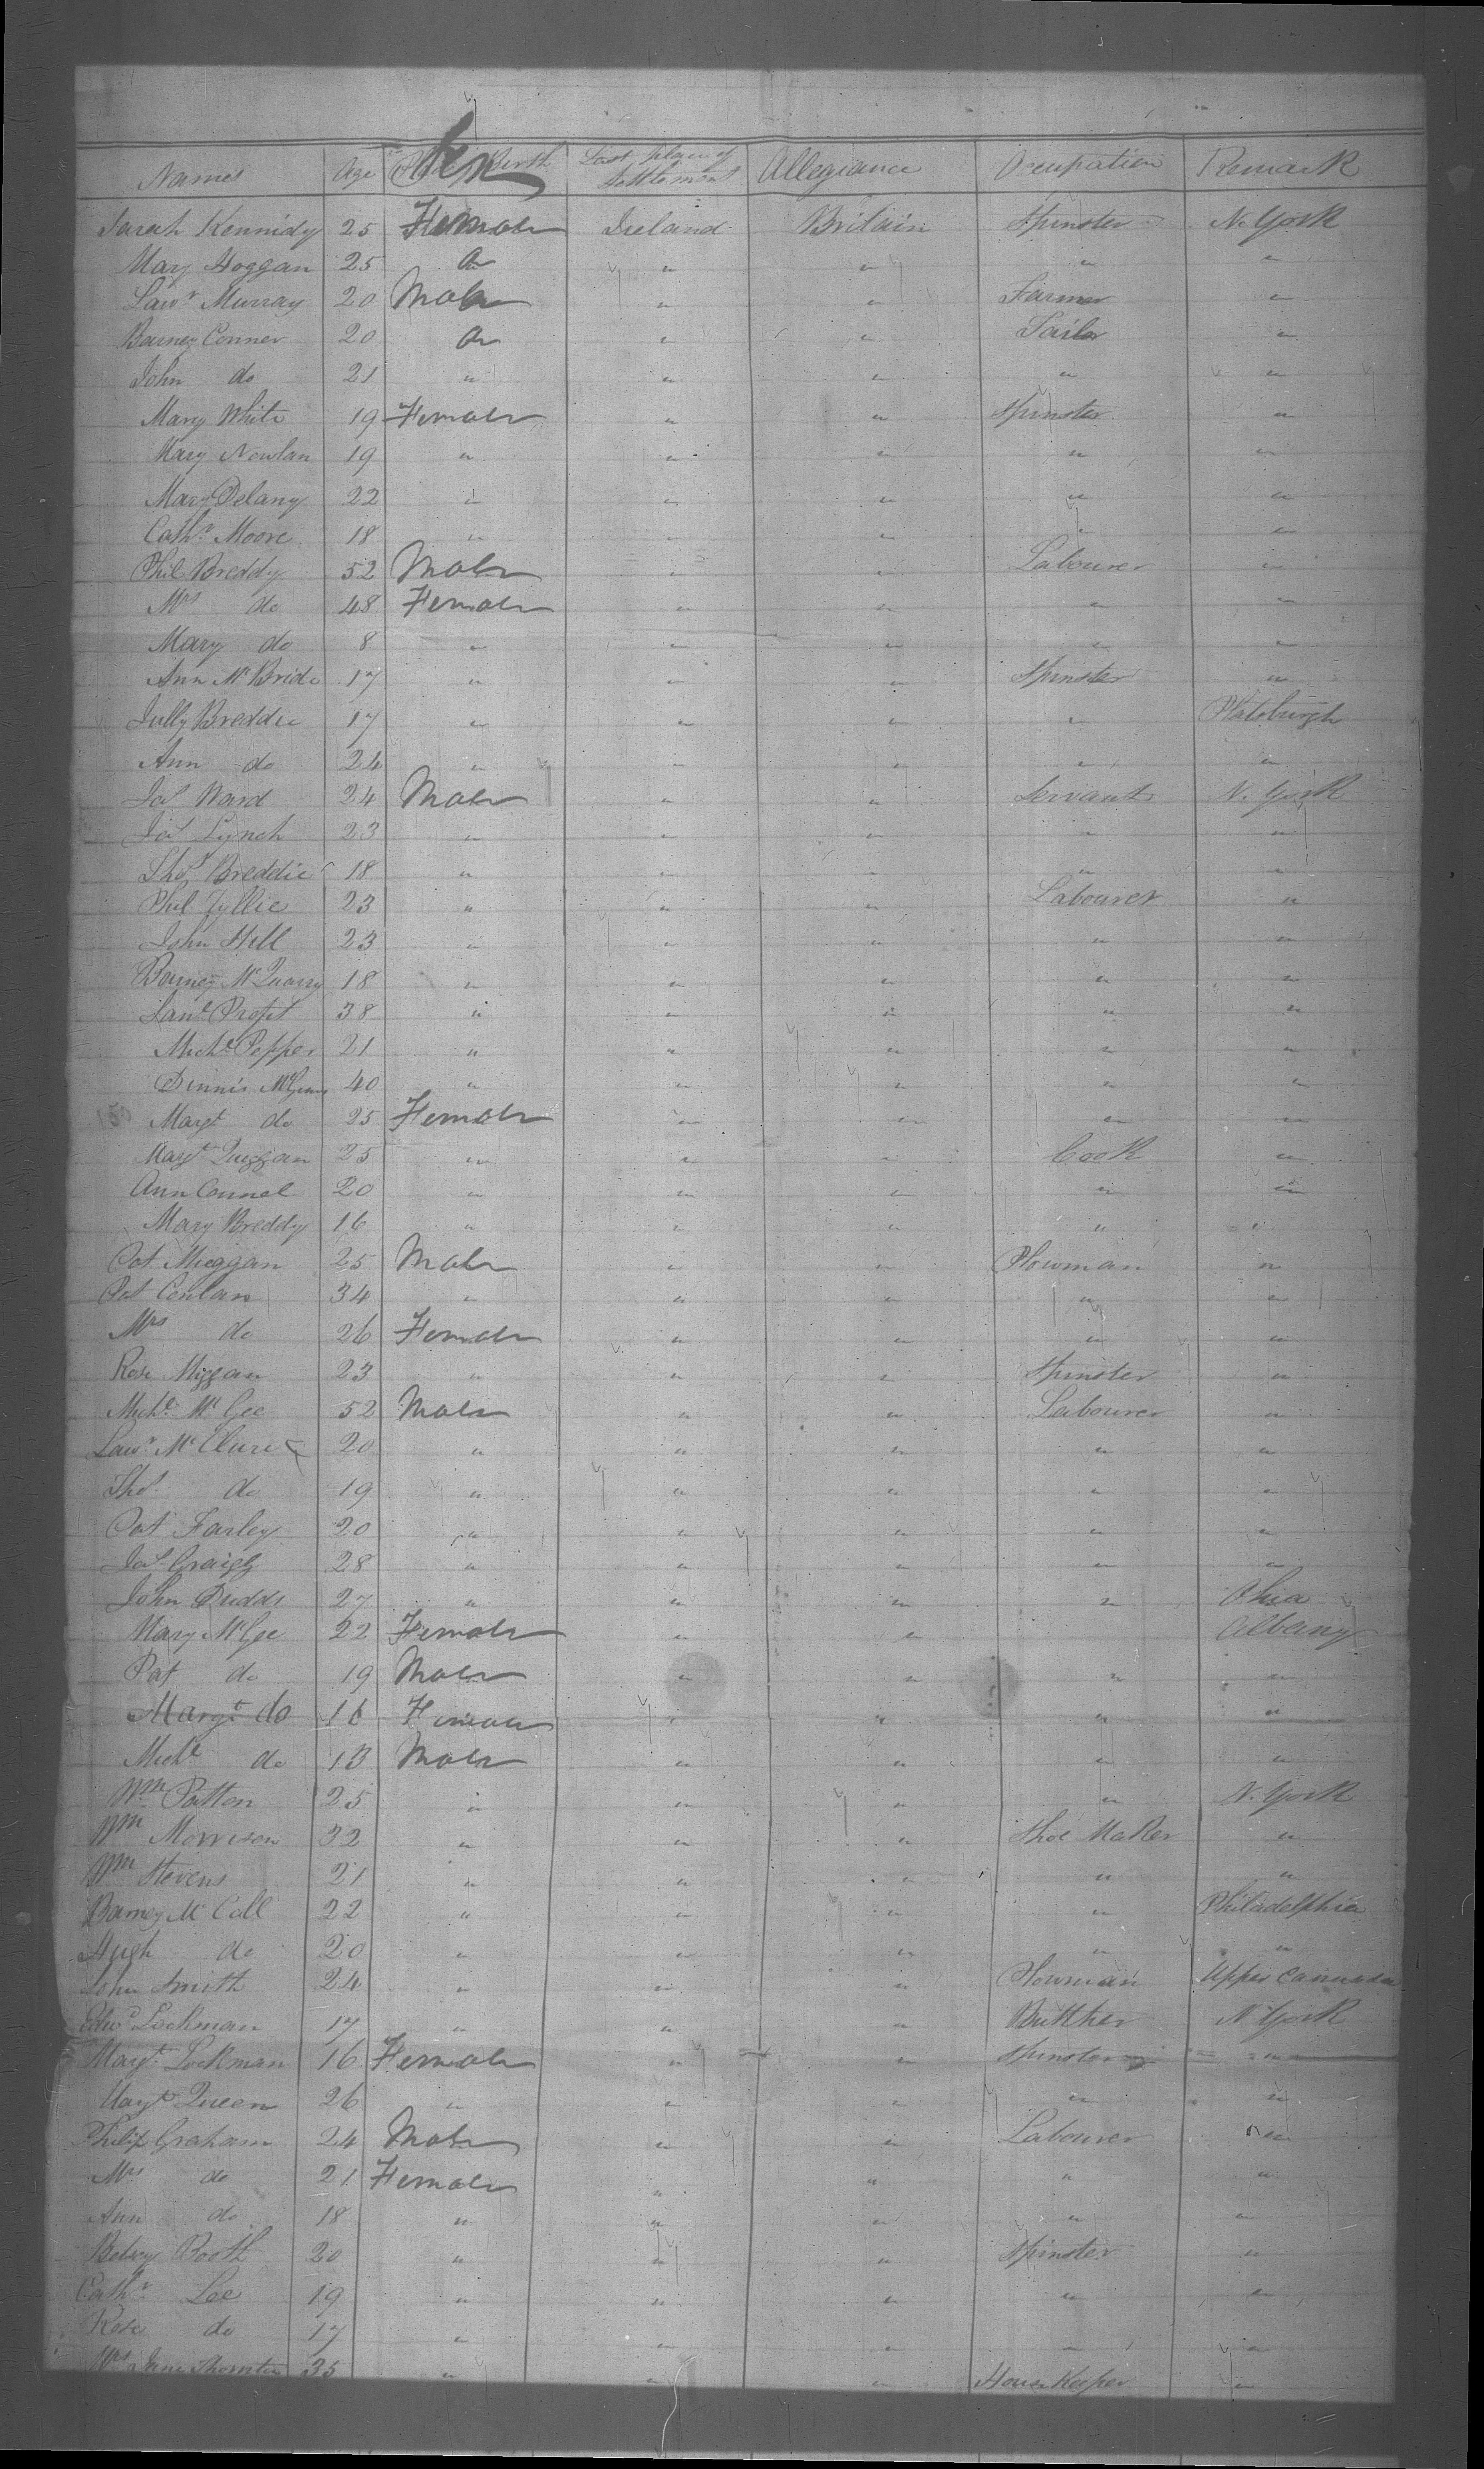 Names Age Place of Birth Sex Last place of Settlement Allegiance Occupation Remark
Sarah Kennidy 25 Female Ireland Britain Spinster N. York
Mary Hoggan 25 do " " " "
Lawr Murray 20 Male " " Farmer "
Barney Conner 20 do " " Tailor "
John do 21 " " " " "
Mary White 19 Female " " Spinster "
Mary Nowlan 19 " " " " "
Mary Delany 22 " " " " "
Cathr Moore 18 " " " " "
Phil Breddy 52 Male " " Labourer "
Mrs do 48 Female " " " "
Mary do 8 " " " " "
Ann McBride 17 " " " Spinster "
Jully Breddie 17 " " " " Platsburgh
Ann do 24 " " " " "
Jas Ward 24 Male " " Servant N. York
Jas Lynch 23 " " " " "
Thos Breddie 18 " " " " "
Phil 23 " " " Labourer "
John Hill 23 " " " " "
Barney McQuarry 18 " " " " "
Profit 38 " " " " "
Michl Pepper 21 " " " " "
Dinnis 40 " " " " "
Margt do 25 Female " " " "
Margt 25 " " " Cook "
Ann Connel 20 " " " " "
Mary Breddy 16 " " " " "
Pat Meggan 25 Male " " Plowman "
Pat Conlan 34 " " " " "
Mrs do 26 Female " " " "
Rose Miggan 23 " " " Spinster "
Michl McGee 52 Male " " Labourer "
Lawr McClure 20 " " " " "
Thos do 19 " " " " "
Pat Farley 20 " " " " "
Jas Graigg 28 " " " " "
John Dudds 27 " " " " Ohio
Mary McGee 22 Female " " Albany
Pat do 19 Male " " " "
Margt do 16 Female " " " "
Michl do 13 Male " " " "
Wm Patton 25 " " " " N. York
Wm Morrison 32 " " " Shoe Maker "
Wm Stevens 21 " " " " "
Barney McColl 22 " " " " Philadelphia
Hugh do 20 " " " " "
John Smith 24 " " " Plowman Upper Cannada
Edwd Lockman 17 " " " Butther N. York
Margt Lockman 16 Female " " Spinster "
Margt Queen 26 " " " " "
Philip Graham 24 Male " " Labourer "
Mrs do 21 Female " " " "
Ann do 18 " " " " "
Betsey Booth 20 " " " Spinster "
Cathr Lee 19 " " " " "
Rose do 17 " " " " "
Mrs Jane Thornton 35 " " " House Keeper "